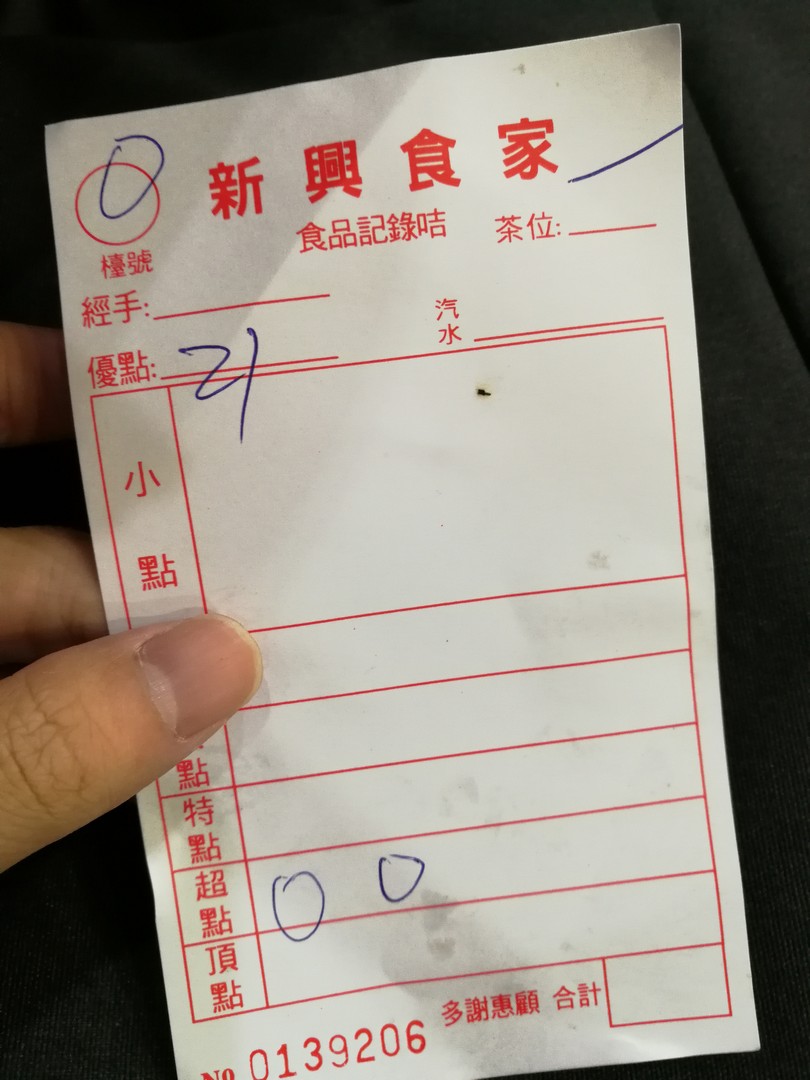 0
新興食家
檯號
食品記錄咭 茶位:
經手:
汽水
優點: 21
小點
點
特點
超點 0 0
頂點
多謝惠顧 合計
No 0139206